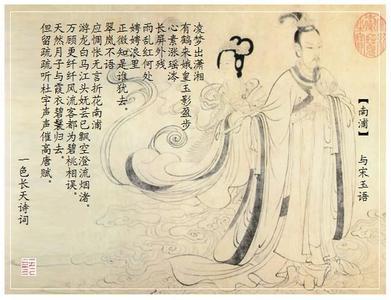 【南浦】 与宋玉语
凌梦出潇湘
有鹤来娥皇玉影盈步
心素涨瑶
长屏外残
雨乱红何处
娉娉浪里
正微知是谁犹去。
翠岚不语
应惆怅无言折花南浦
游龙白马江头抚芸已飘空澄流烟渚。
万顾更纤纤风流客都为碧桃相误。
天然月子与霞衣碧鬟归去。
但留疏疏听杜宇声声催高唐赋。
一色长天诗词